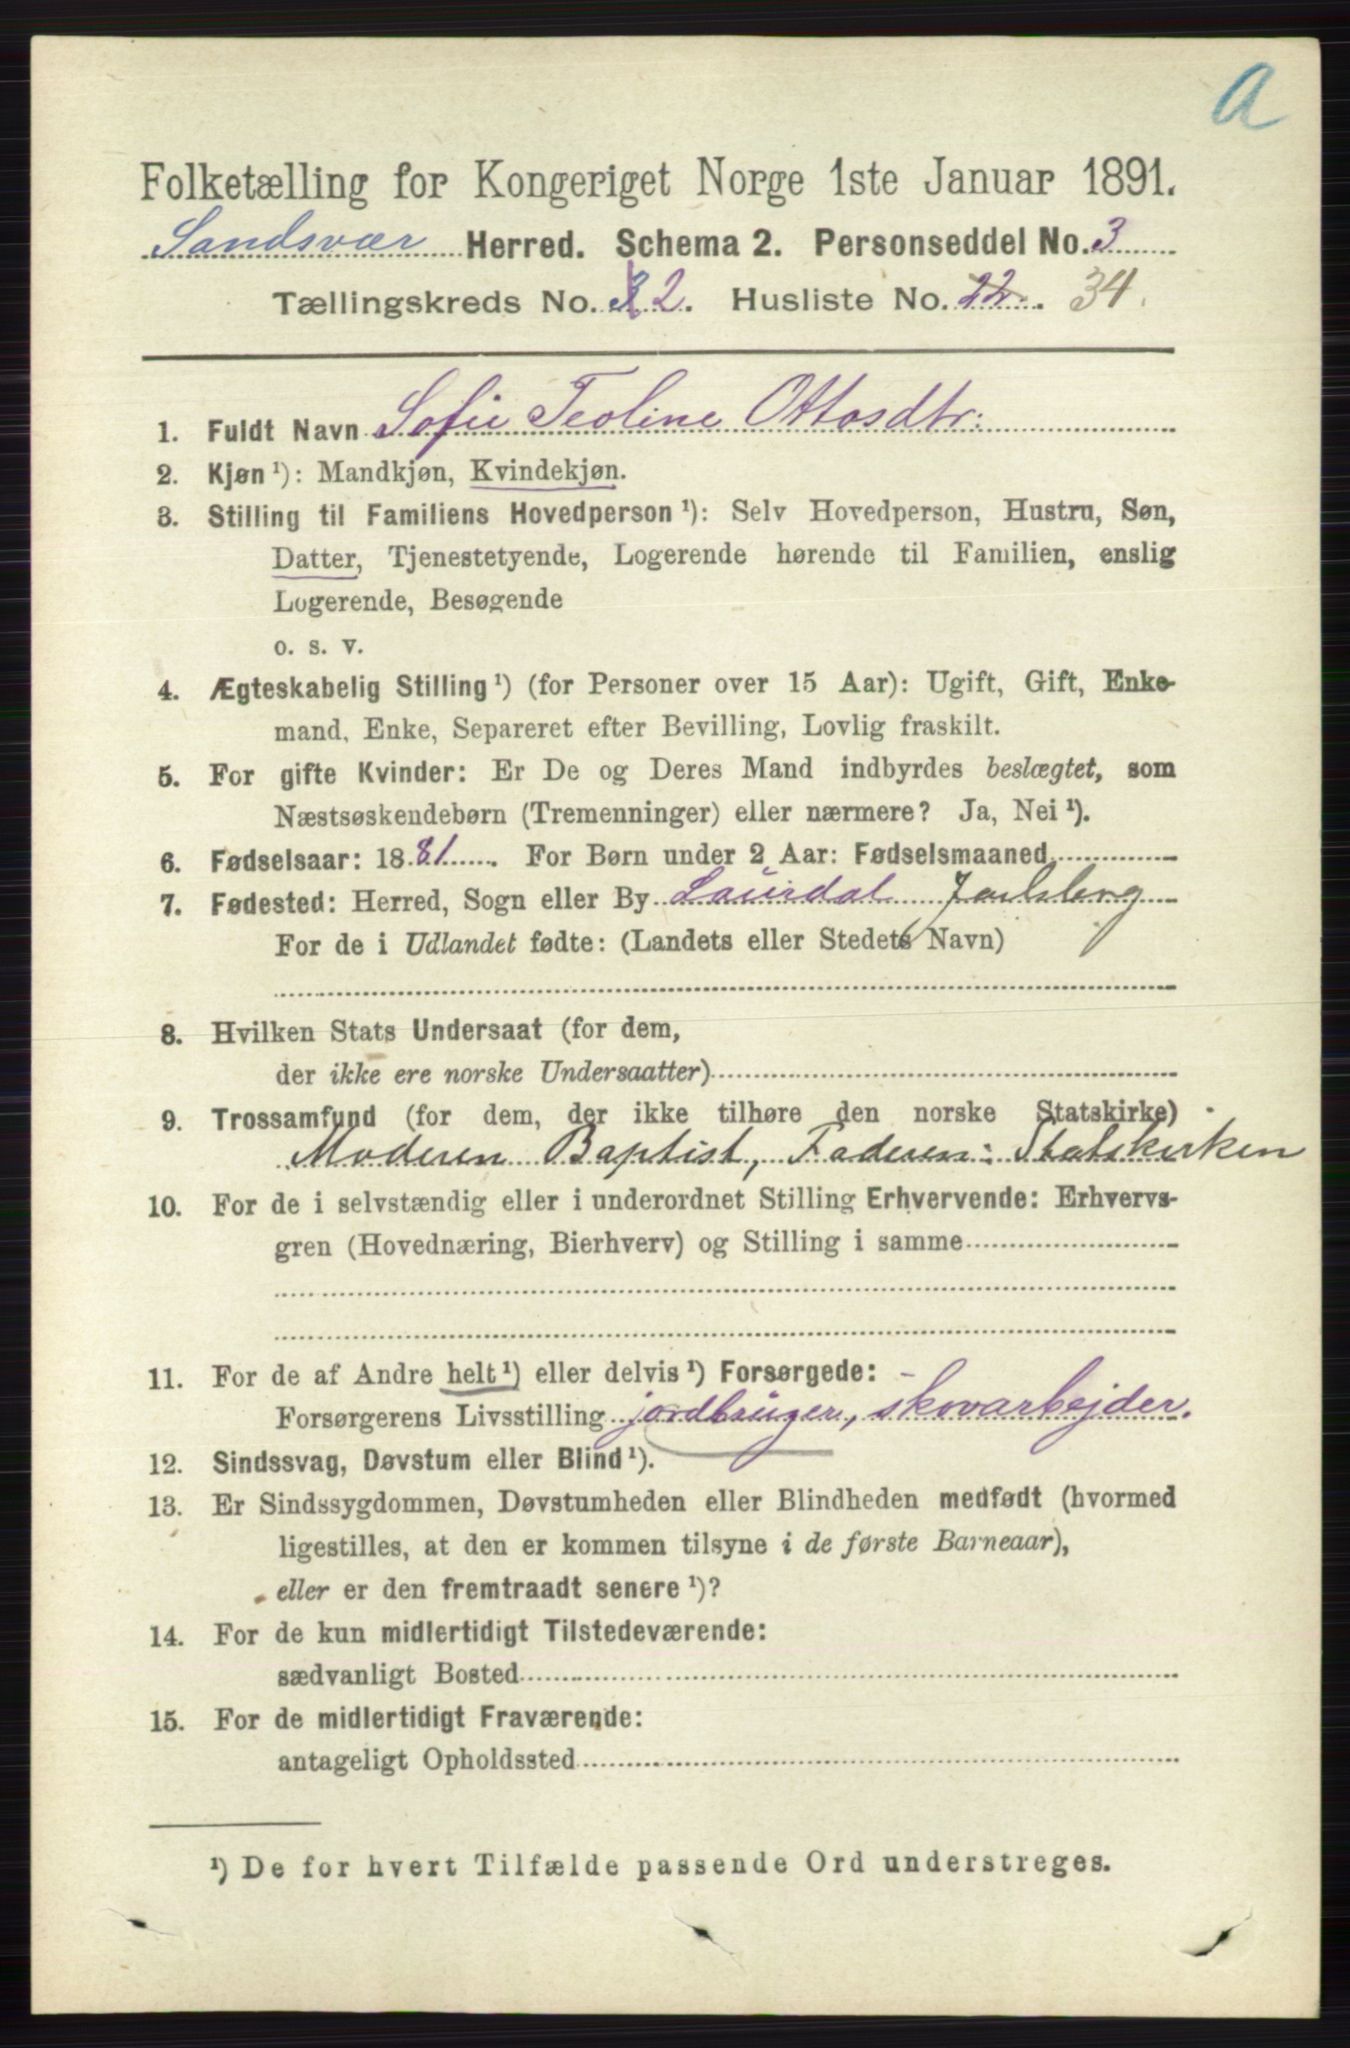 a
Folketælling for Kongeriget Norge 1ste Januar 1891.
Sandsvær Herred. Schema 2. Personseddel No. 3
Tællingskreds No. 3 2. Husliste No. 22. 34.
1. Fuldt Navn Sofie Teoline Ottosdtr:
2. Kjøn ¹): Mandkjøn, Kvindekjøn.
3. Stilling til Familiens Hovedperson ¹): Selv Hovedperson, Hustru, Søn,
Datter, Tjenestetyende, Logerende hørende til Familien, enslig
Logerende, Besøgende
o. s. v.
4. Ægteskabelig Stilling ¹) (for Personer over 15 Aar): Ugift, Gift, Enke-
mand, Enke, Separeret efter Bevilling, Lovlig fraskilt.
5. For gifte Kvinder: Er De og Deres Mand indbyrdes beslægtet, som
Næstsøskendebørn (Tremenninger) eller nærmere? Ja, Nei ¹).
6. Fødselsaar: 1881. For Børn under 2 Aar: Fødselsmaaned
7. Fødested: Herred, Sogn eller By Laurdal Jarlsberg
For de i Udlandet fødte: (Landets eller Stedets Navn)
8. Hvilken Stats Undersaat (for dem,
der ikke ere norske Undersaatter)
9. Trossamfund (for dem, der ikke tilhøre den norske Statskirke)
Moderen Baptist, Faderen: Statskirken
10. For de i selvstændig eller i underordnet Stilling Erhvervende: Erhvervs-
gren (Hovednæring, Bierhverv) og Stilling i samme
11. For de af Andre helt ¹) eller delvis ¹) Forsørgede:
Forsørgerens Livsstilling jordbruger, skovarbejder.
12. Sindssvag, Døvstum eller Blind ¹).
13. Er Sindssygdommen, Døvstumheden eller Blindheden medfødt (hvormed
ligestilles, at den er kommen tilsyne i de første Barneaar),
eller er den fremtraadt senere ¹)?
14. For de kun midlertidigt Tilstedeværende:
sædvanligt Bosted
15. For de midlertidigt Fraværende:
antageligt Opholdssted
¹) De for hvert Tilfælde passende Ord understreges.